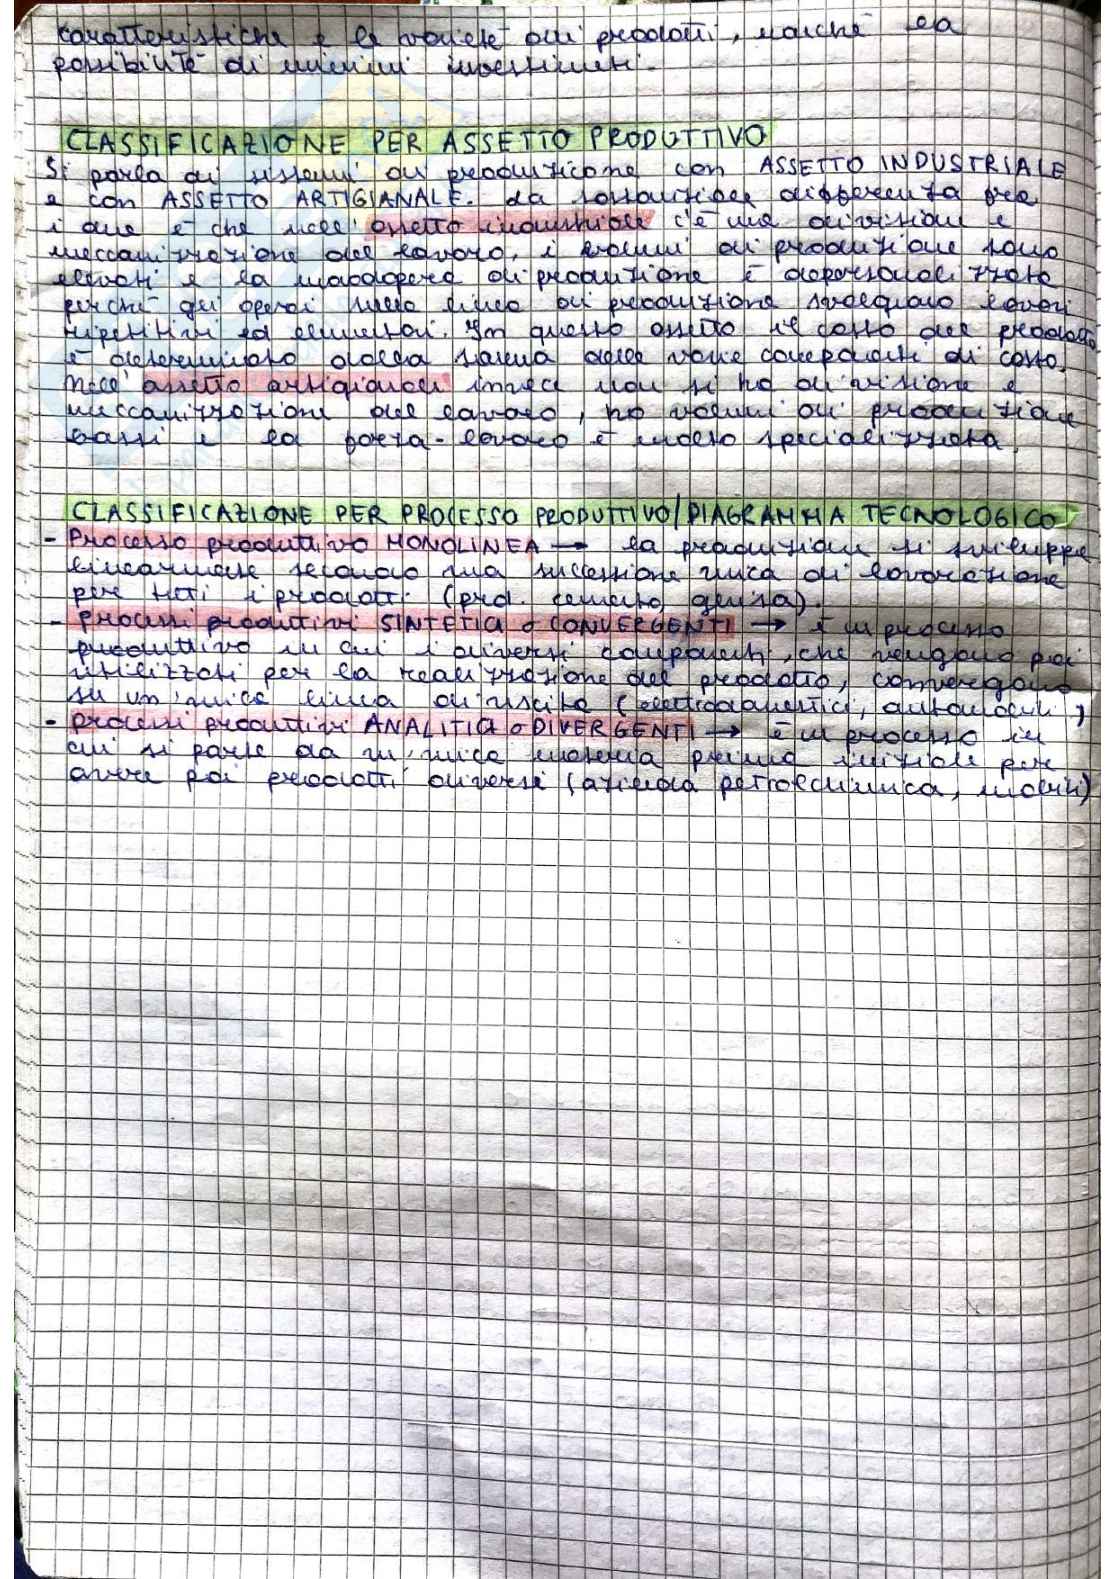 caratteristiche e la varietà dei prodotti, nonché la
possibilità di minimi investimenti.
CLASSIFICAZIONE PER ASSETTO PRODUTTIVO
Si parla di sistemi di produzione con ASSETTO INDUSTRIALE
e con ASSETTO ARTIGIANALE. La sostanziale differenza fra
i due è che nell'assetto industriale c'è una divisione e
meccanizzazione del lavoro, i volumi di produzione sono
elevati e la manodopera di produzione è depersonalizzata
perché gli operai sulla linea di produzione svolgono lavori
ripetitivi ed elementari. In questo assetto il costo del prodotto
è determinato dalla somma delle varie componenti di costo.
Nell'assetto artigianale invece non si ha divisione e
meccanizzazione del lavoro, ho volumi di produzione
bassi e la forza-lavoro è molto specializzata.
CLASSIFICAZIONE PER PROCESSO PRODUTTIVO/DIAGRAMMA TECNOLOGICO
- Processo produttivo MONOLINEA → la produzione si sviluppa
linearmente secondo una successione unica di lavorazione
per tutti i prodotti (prod. cemento, ghisa).
- processi produttivi SINTETICI o CONVERGENTI → è un processo
produttivo in cui i diversi componenti, che vengono poi
utilizzati per la realizzazione del prodotto, convergono
su un'unica linea di uscita (elettrodomestici, automobili)
- processi produttivi ANALITICI o DIVERGENTI → è un processo in
cui si parte da un'unica materia prima iniziale per
avere poi prodotti diversi (azienda petrolchimica, mobili)